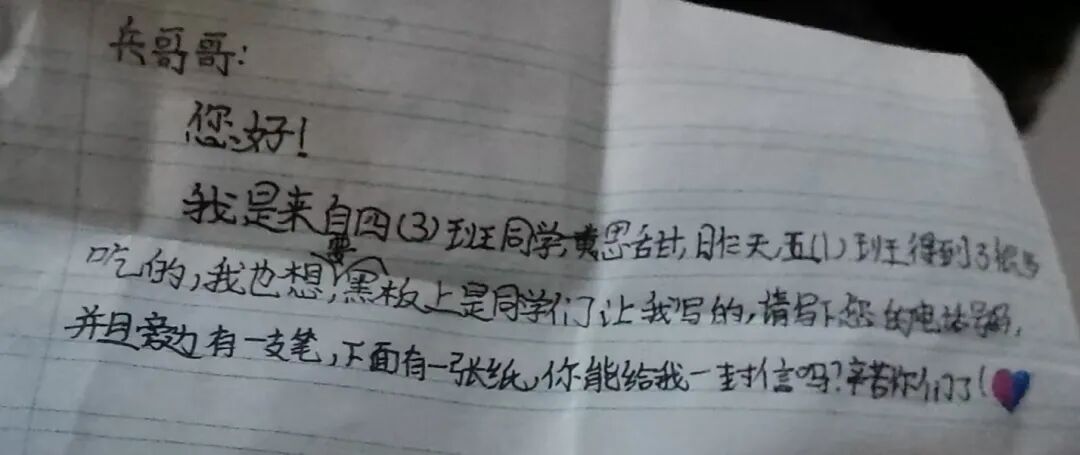 兵哥哥:
您好!
我是来自四(3)班同学黄思甜,昨天,五(1)班得到了很多
吃的,我也想要,黑板上是同学们让我写的,请写下您的电话号码,
并且旁边有一支笔,下面有一张纸,你能给我一封信吗?辛苦你们了!